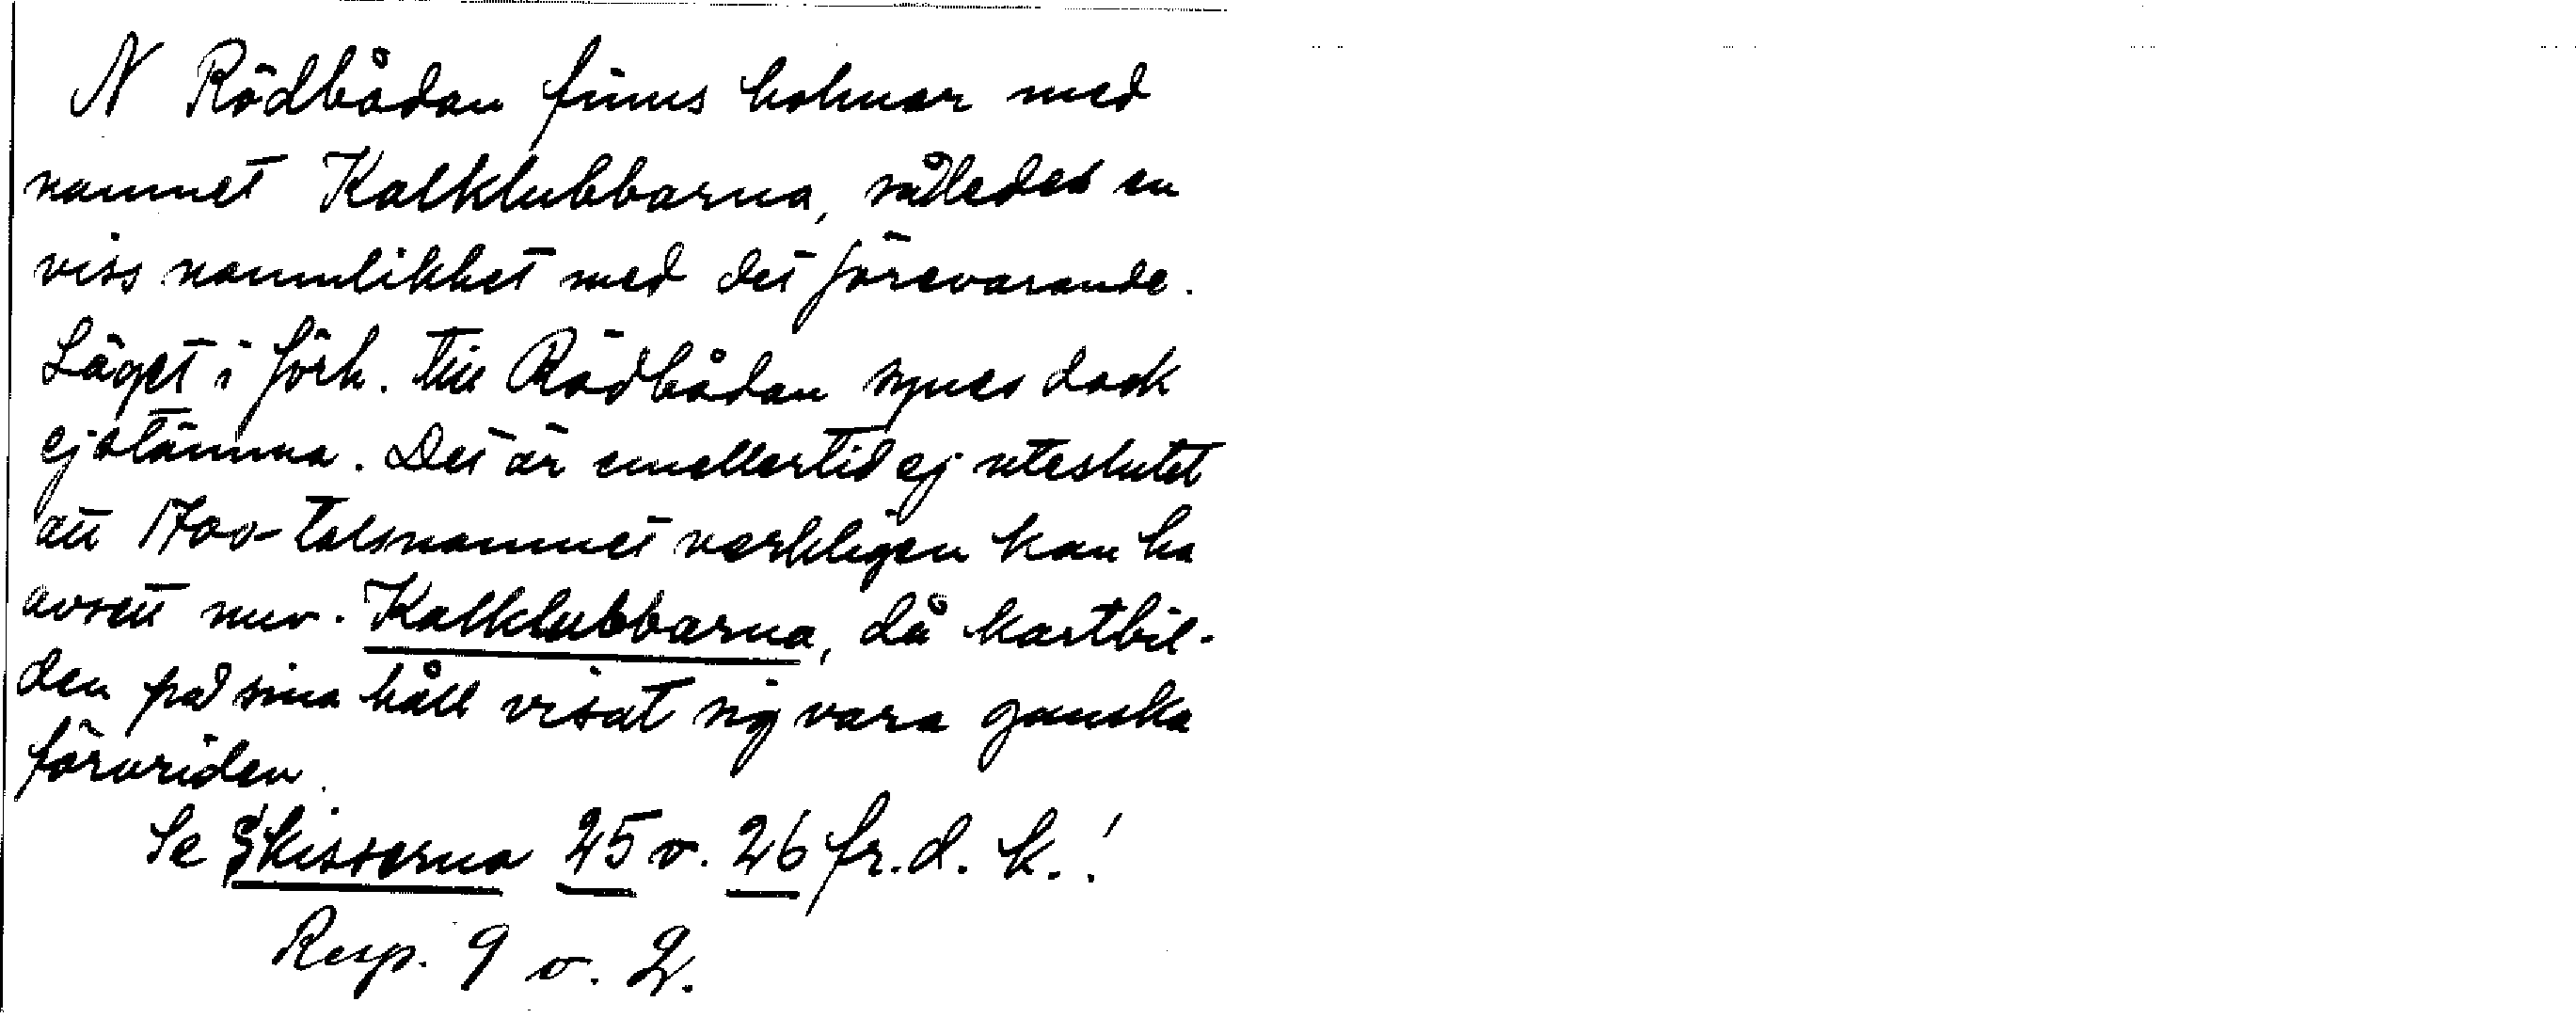 N Rödbådan finns holmar med
namnet Kalklubbarna, således en
viss namnlikhet med det förevarande.
Läget i förh. till Rödbådan synes dock
ej stämma. Det är emellertid ej uteslutet
att 1700-talsnamnet verkligen kan ha
avsett nuv. Kalklubbarna, då kartbil-
den på sina håll visat sig vara ganska
förvriden.
Se Skisserna 25 o. 26 fr. d. k.!
Resp. 9 o. 2.